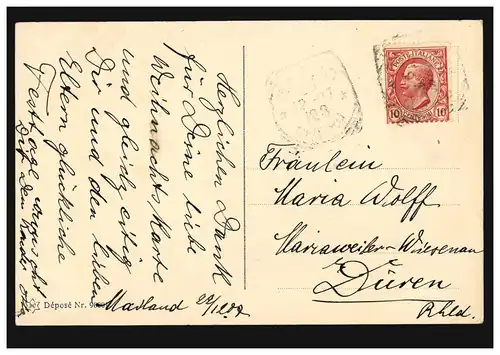 Herzlichen Dank
für Deine liebe
Weihnachts Karte
und gleichzeitig
Dir und den lieben
Eltern glückliche
Festtage wünscht
Mailand 22/12 07
Déposé Nr.
POSTE ITALIANE
10 10
Fräulein
Maria Wolff
Mariaweiler-Wiesenau
Düren
Rhld.